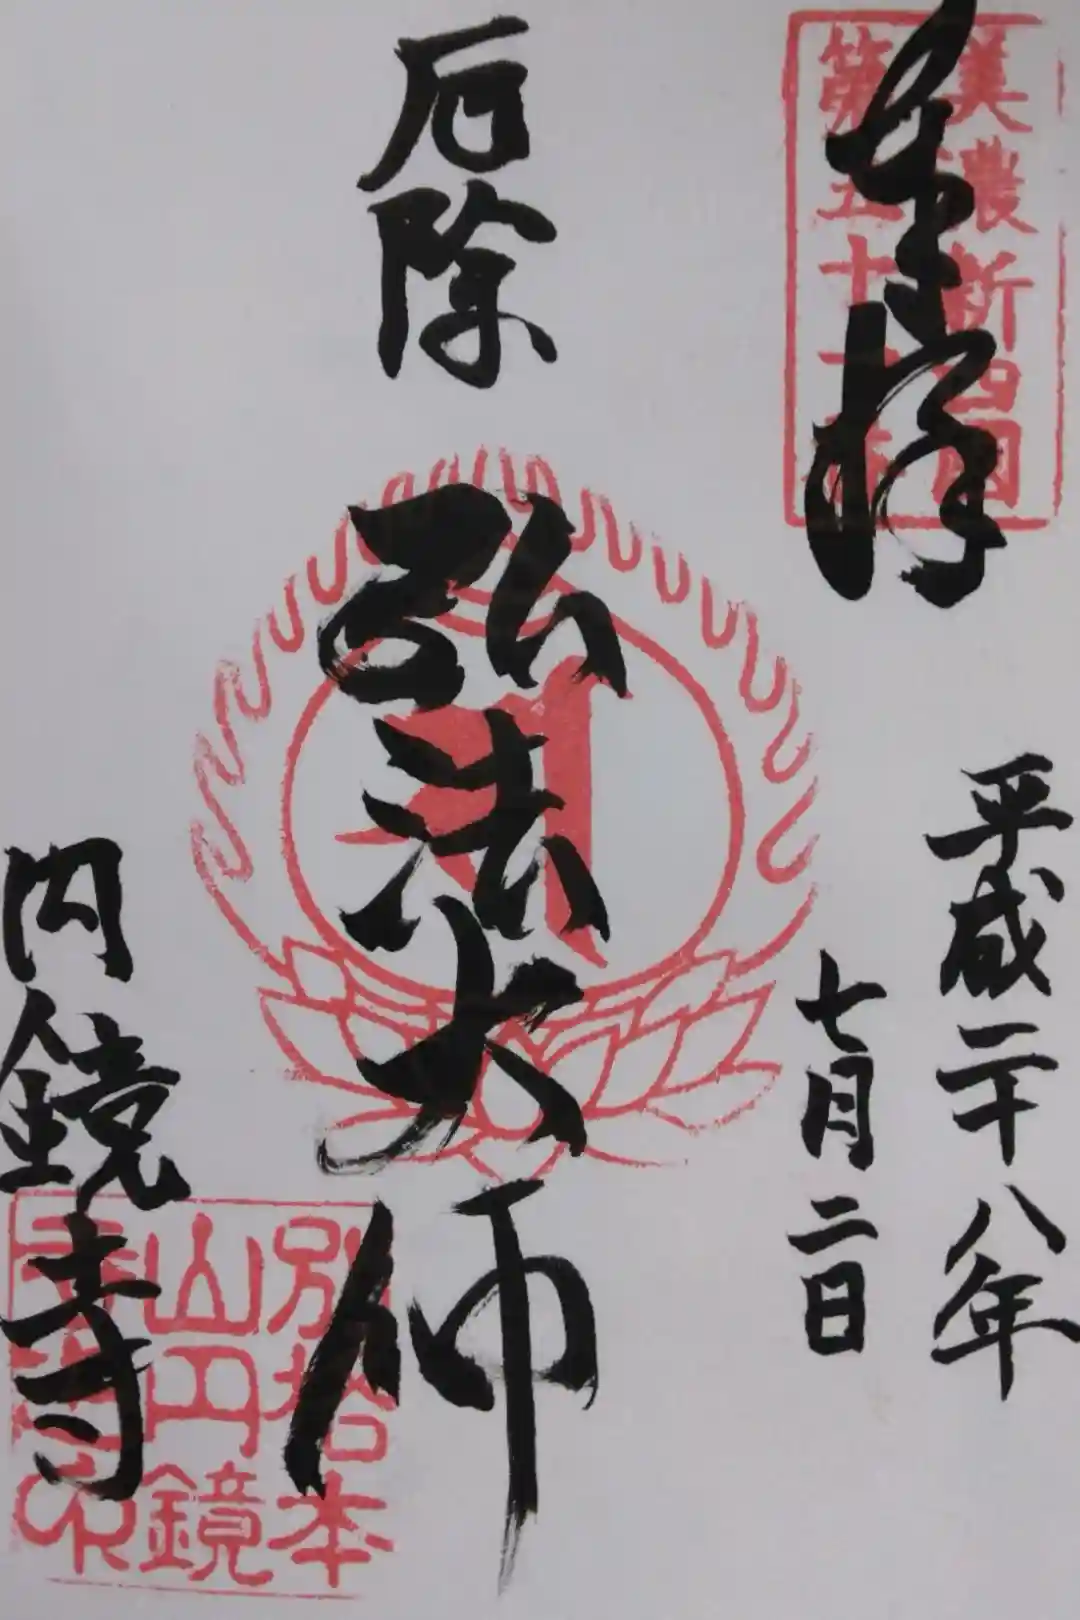 奉拝
美濃新四国
平成二十八年
七月二日
厄除
弘法大師
円鏡寺
別格本
山円鏡
寺之印